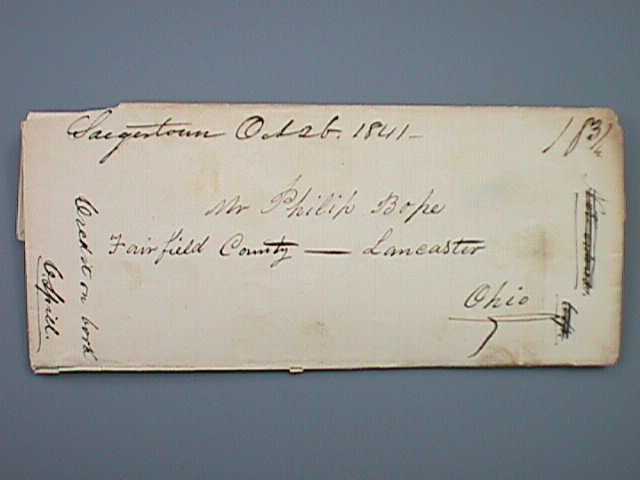 Saegertown Oct 26. 1841-
18 3/4
Mr Philip Bope
Fairfield County — Lancaster
Ohio
Credit on book